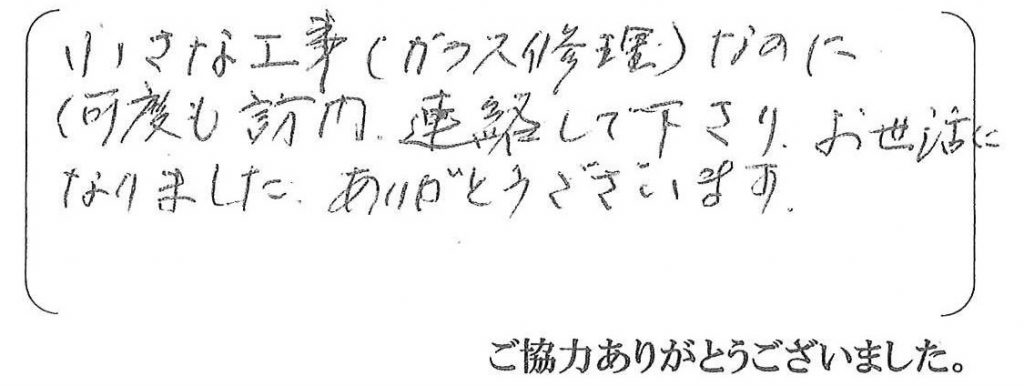 小さな工事(ガラス修理)なのに
何度も訪問、連絡して下さり、お世話に
なりました。ありがとうございます。
ご協力ありがとうございました。